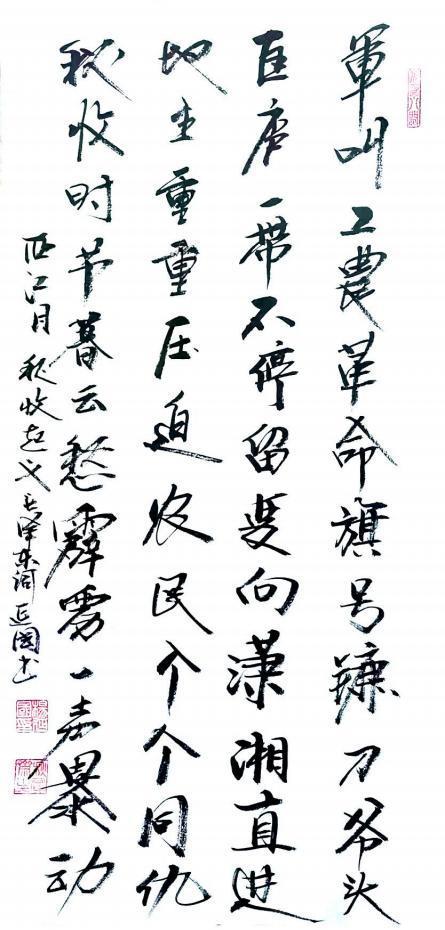 軍叫工農革命旗号鐮刀斧头
匡庐一带不停留要向潇湘直进
地主重重压迫农民个个同仇
秋收时节暮云愁霹雳一声暴动
西江月 秋收起义 毛泽东词 延国书